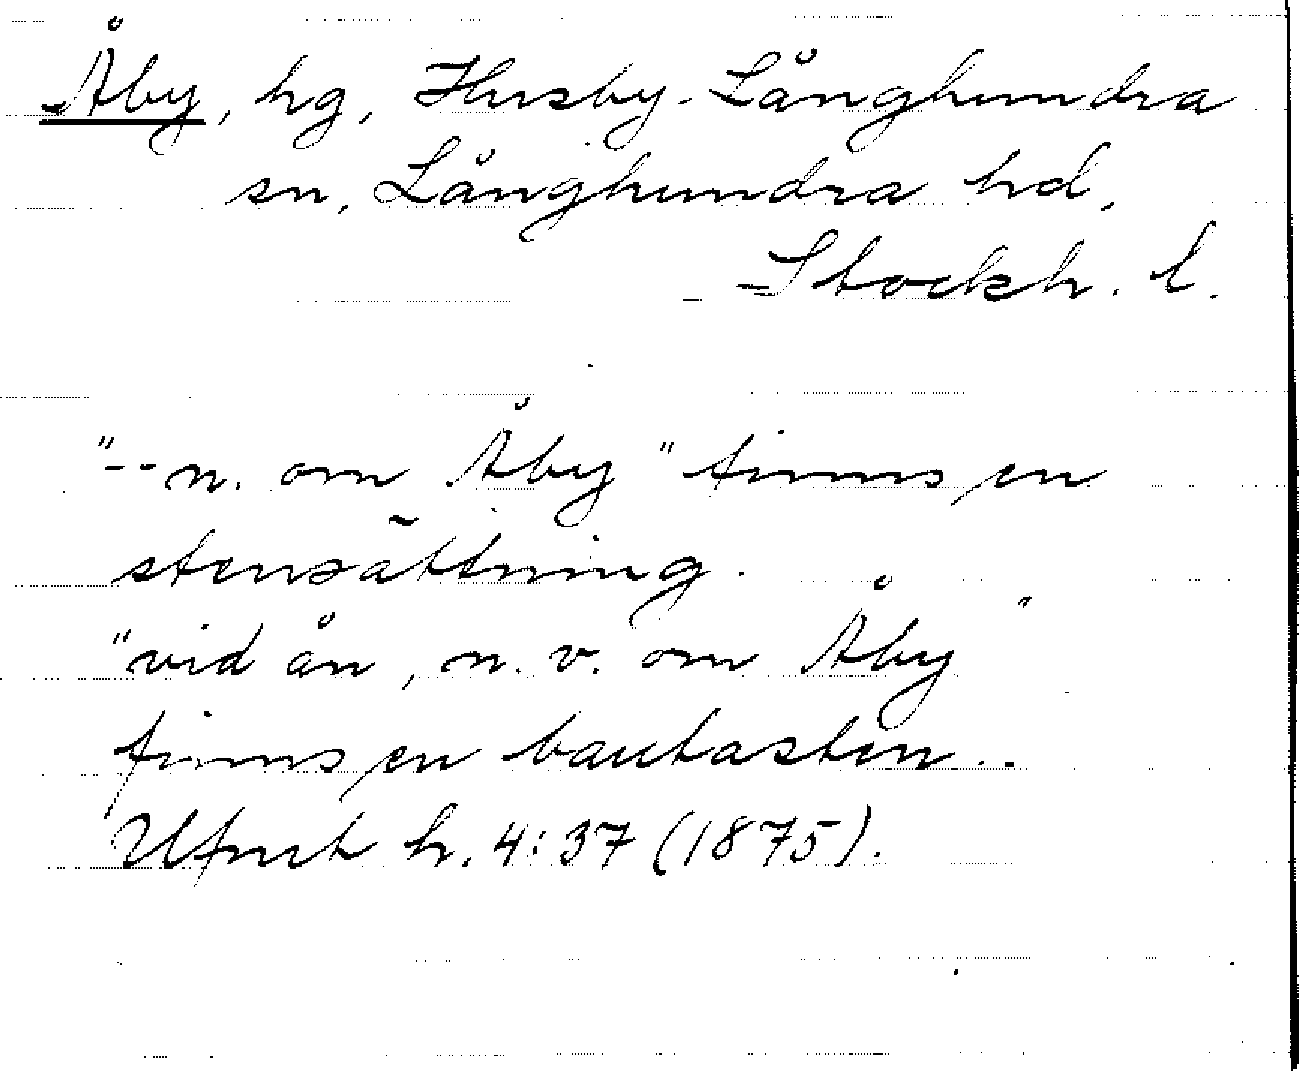 Åby, hg, Husby-Långhundra
sn, Långhundra hd,
Stockh. l.
"-- n. om Åby" finns en
stensättning.
"vid ån, n. v. om Åby"
finns en bautasten..
Ufmt h. 4:37 (1875).